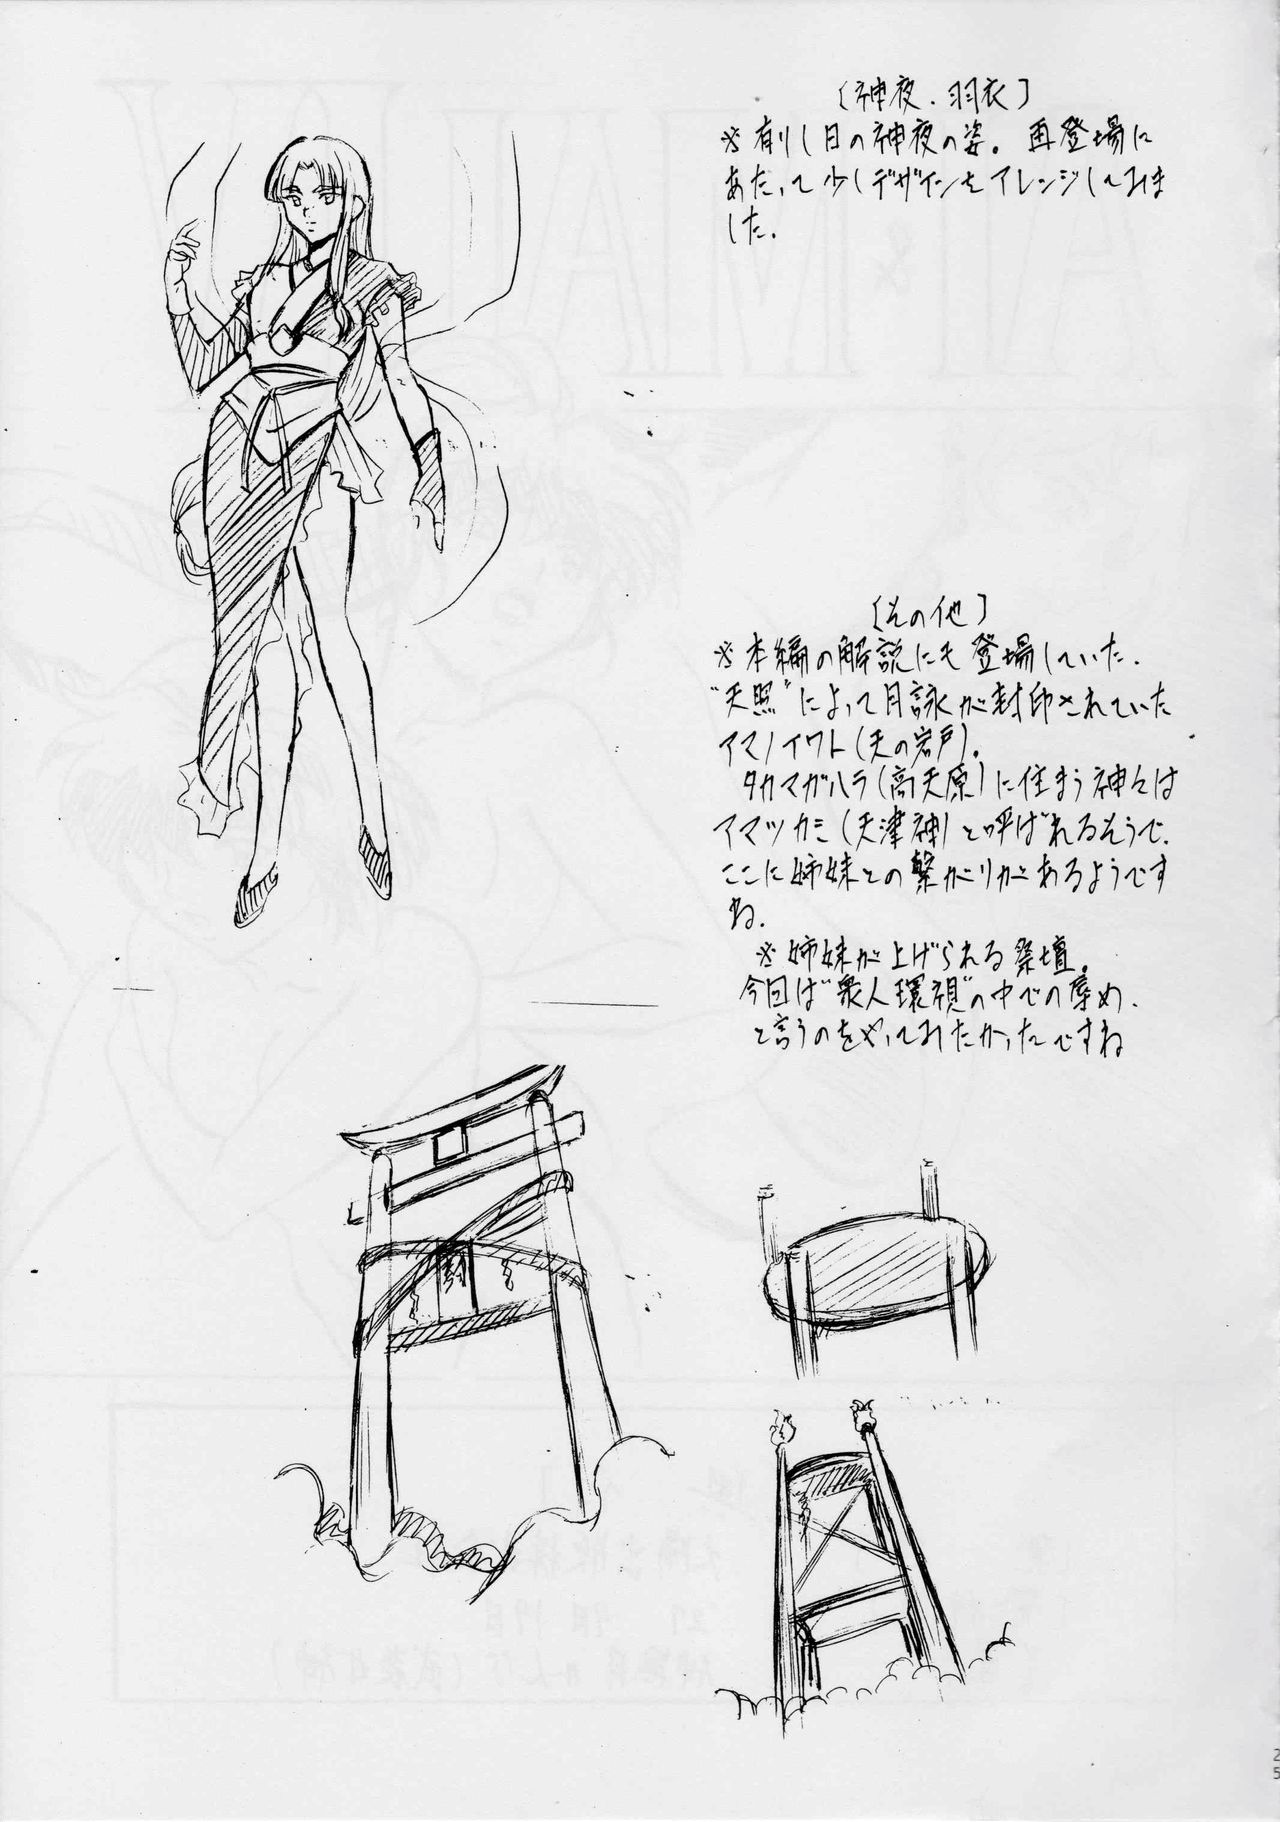 〔神夜・羽衣〕
※有りし日の神夜の姿。再登場に
あたって少しデザインをアレンジしてみま
した。
〔その他〕
※本編の解説にも登場していた、
"天照"によって月詠が封印されていた
アマノイワト(天の岩戸)。
タカマガハラ(高天原)に住まう神々は
アマツカミ(天津神)と呼ばれるそうで、
ここに姉妹との繋がりがあるようです
ね。
※姉妹が上げられる祭壇。
今回は"衆人環視"の中での辱め、
と言うのをやってみたかったですね
封
25